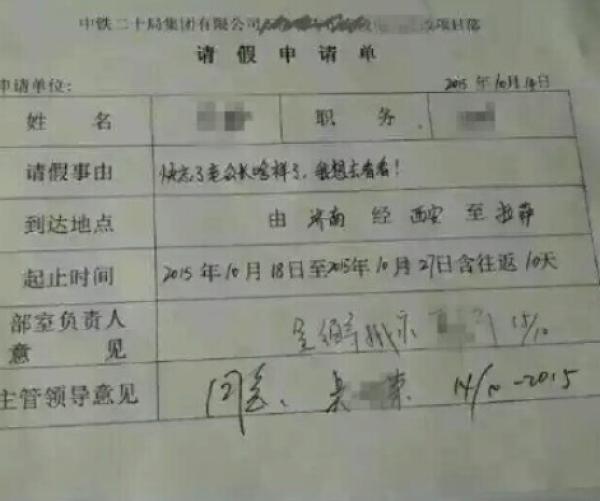 中铁二十局集团有限公司 项目部
请假申请单
申请单位: 2015年10月14日
姓名 职务
请假事由 快忘了老公长啥样了，我想去看看！
到达地点 由 济南 经 西安 至 拉萨
起止时间 2015年10月18日至2015年10月27日含往返10天
部室负责人
意见 呈领导批示 15/10
主管领导意见 同意、吴 14/10-2015